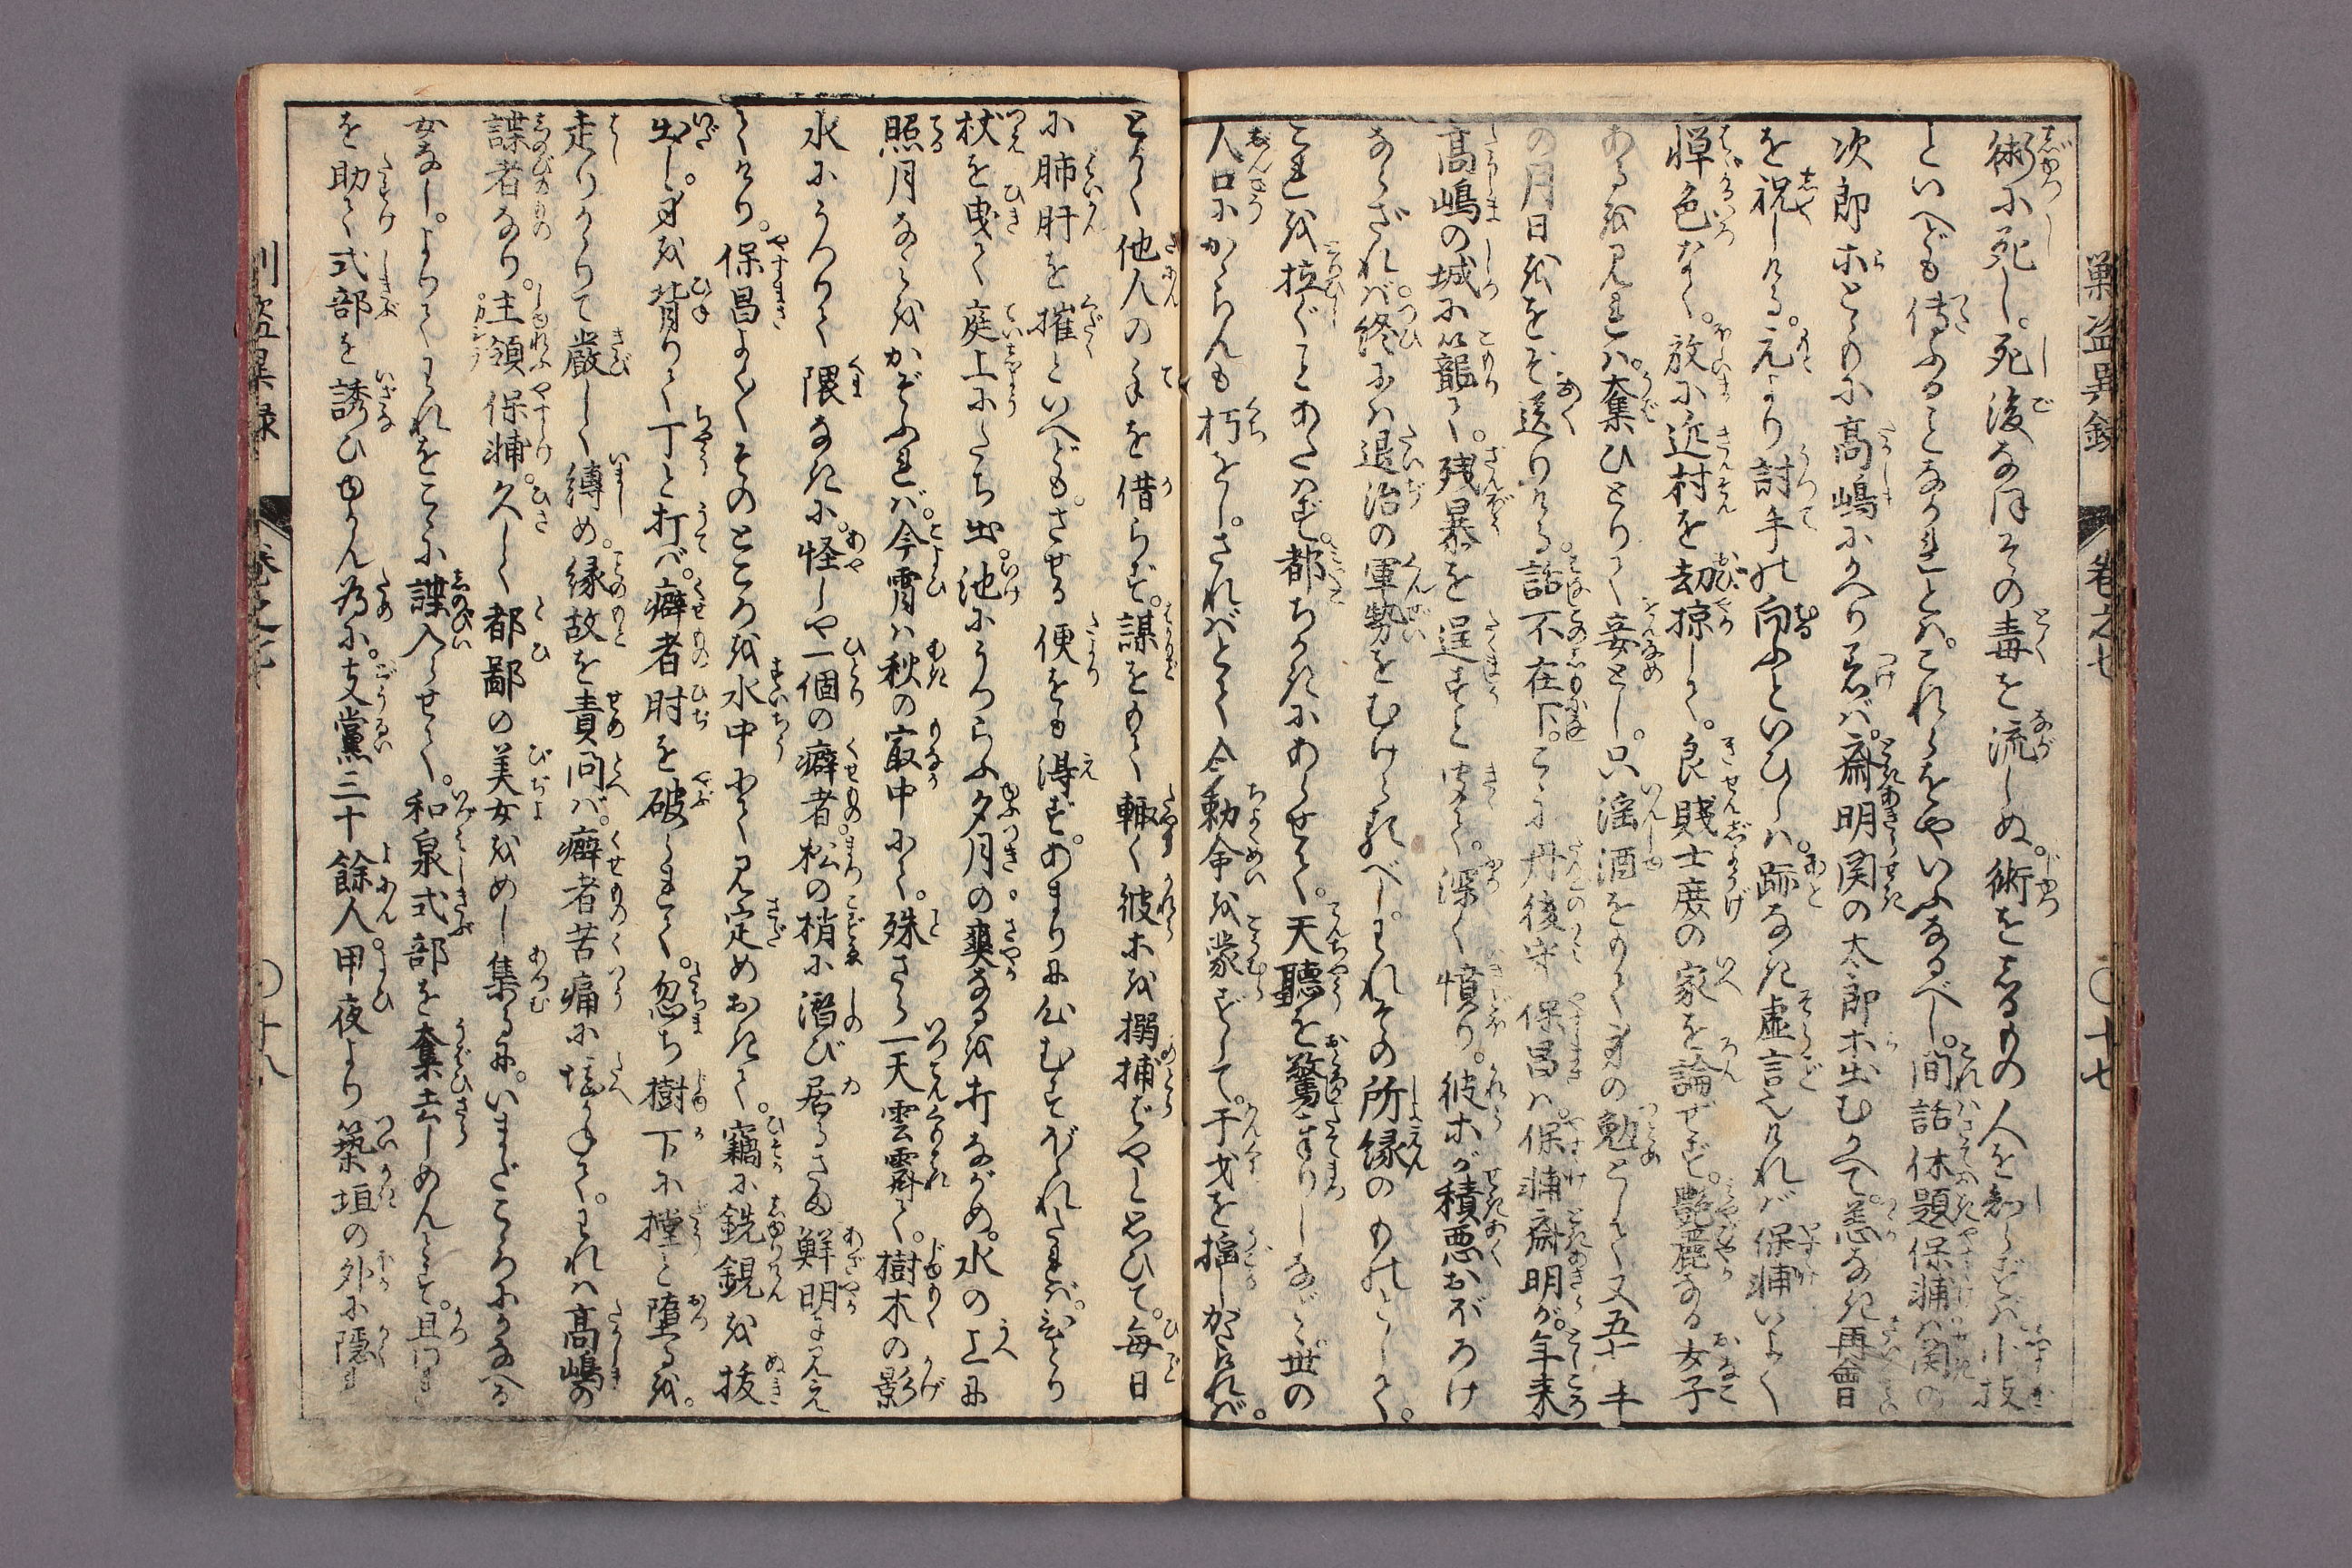 術に死し。死後なほその毒を流しぬ。術をしるもの人を制らざれば小技
といへども傳ふることなかれとは。これらをやいふなるべし。間話休題保輔は関の
次郎ホとゝもに高嶋にかへり着ば。齋明関の太郎ホ出むかへて。恙なき再會
を祝しける。元より討手の向ふといひしは。跡なき虚言なれば保輔いよく
憚色なく。放に近村を刧掠して。良賤士庶の家を論ぜず。艶麗なる女子
あるを見れは。奪ひとりて妾とし。只淫酒をもて身の勉として又五十年
の月日をぞ送りける。話不在下。こゝに丹後守保昌は。保輔齋明が。年来
高嶋の城に籠て。残暴を逞すと聞て。深く憤り。彼ホが積悪おぼろけ
ならざれば。終には退治の軍勢をむけらるべし。われその所縁のものとして。
これを拉ぐことあたはず。都ちかきにあらせて。天聽を驚奉りしなど。世の
人口にかゝらんも朽をし。さればとて今勅命を蒙ずして。干戈を揺しがたければ。
とかく他人の手を借らず。謀をもて輙く彼ホを搦捕ばやと思ひて。毎日
に肺肝を摧といへども。させる便をも得ず。あまりに心むすぼれたれば。ひとり
杖を曳て庭上にたち出。池にうつらふ夕月の。爽なるを打ながめ。水の上に
照月なみをかぞふれば。今宵は秋の最中にて。殊さら一天雲霽て。樹木の影
水にうつりて隈なきに。怪しや一個の癖者。松の梢に潜び居るさま鮮明に見え
てけり。保昌よくそのところを水中にて見定めおきて。竊に銑鋧を抜
出し。身を背りて丁と打ば。癖者肘を破られて。忽ち樹下に摚と墮るを。
走りかゝりて嚴しく縛め。縁故を責問ば。癖者苦痛に堪かねて。われは高嶋の
諜者なり。主領保輔。久しく都鄙の美女をめし集るに。いまだこゝろにかなへる
女なし。よりてわれをこゝに諜入らせて。和泉式部を奪去しめんとす。且つま
を助て式部を誘ひゆかん為に。支黨三十餘人。甲夜より築垣の外に隠ま
巻之七
〇十七